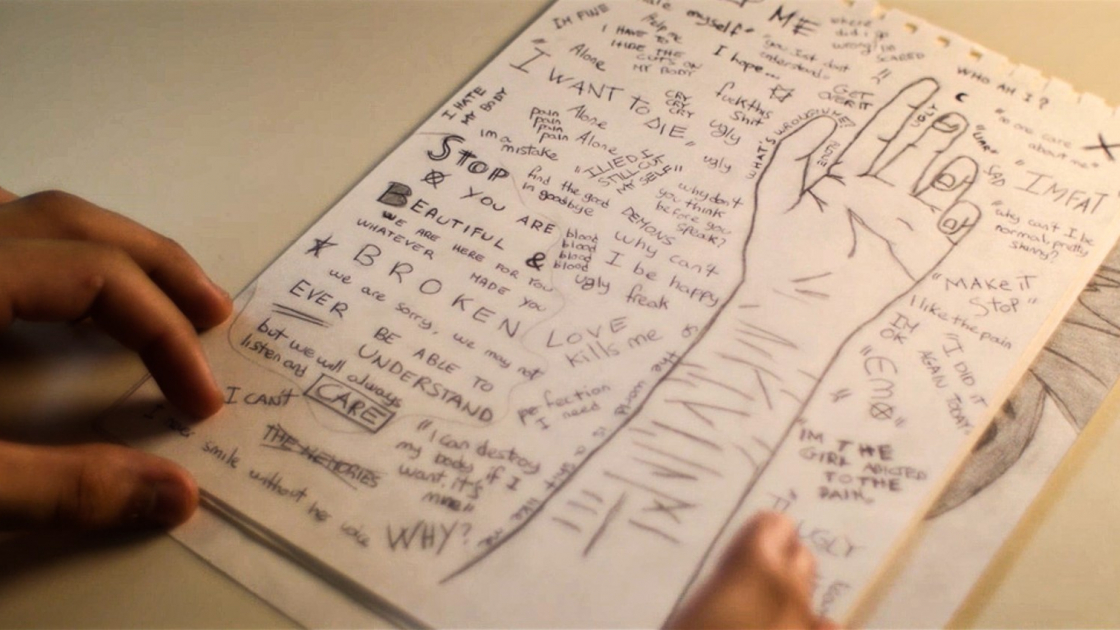 I'M FINE
myself"
ME
HELP ME
I HAVE TO
HIDE THE
CUTS ON
MY BODY
I hope...
where
did i go
wrong?
SCARED
"you just don't
understand"
WHO AM I?
Alone
"I WANT TO DIE"
CRY
CRY
CRY
fuck this
shit
GET
OVER IT
ugly
ugly
I HATE
MY BODY
pain
pain
pain
pain
Alone
Alone
im a
mistake
"I LIED
STILL CUT
MY SELF"
WHAT'S WRONG IN ME?
"no one care
about me"
"LIAR"
SAD
"IM FAT
STOP
YOU ARE
BEAUTIFUL
WE ARE HERE FOR YOU
WHATEVER MADE YOU
BROKEN
&
we are sorry, we may not
EVER BE ABLE TO
UNDERSTAND
but we will always
listen and
CARE
find the good
in goodbye
why don't
you think
before you
speak?
DEMONS
blood
blood
blood
blood
why can't
I be happy
ugly freak
LOVE
kills me
"why can't I be
normal, pretty
skinny?
"MAKE IT
STOP"
I like the pain
IM
OK
"I DID IT
AGAIN TODAY"
"EMO"
perfection
I need
I CAN'T
THE MEMORIES
"I can destroy
my body if I
want, it's
mine"
smile without her
WHY?
"IM THE
GIRL ADICTED
TO THE
PAIN"
UGLY